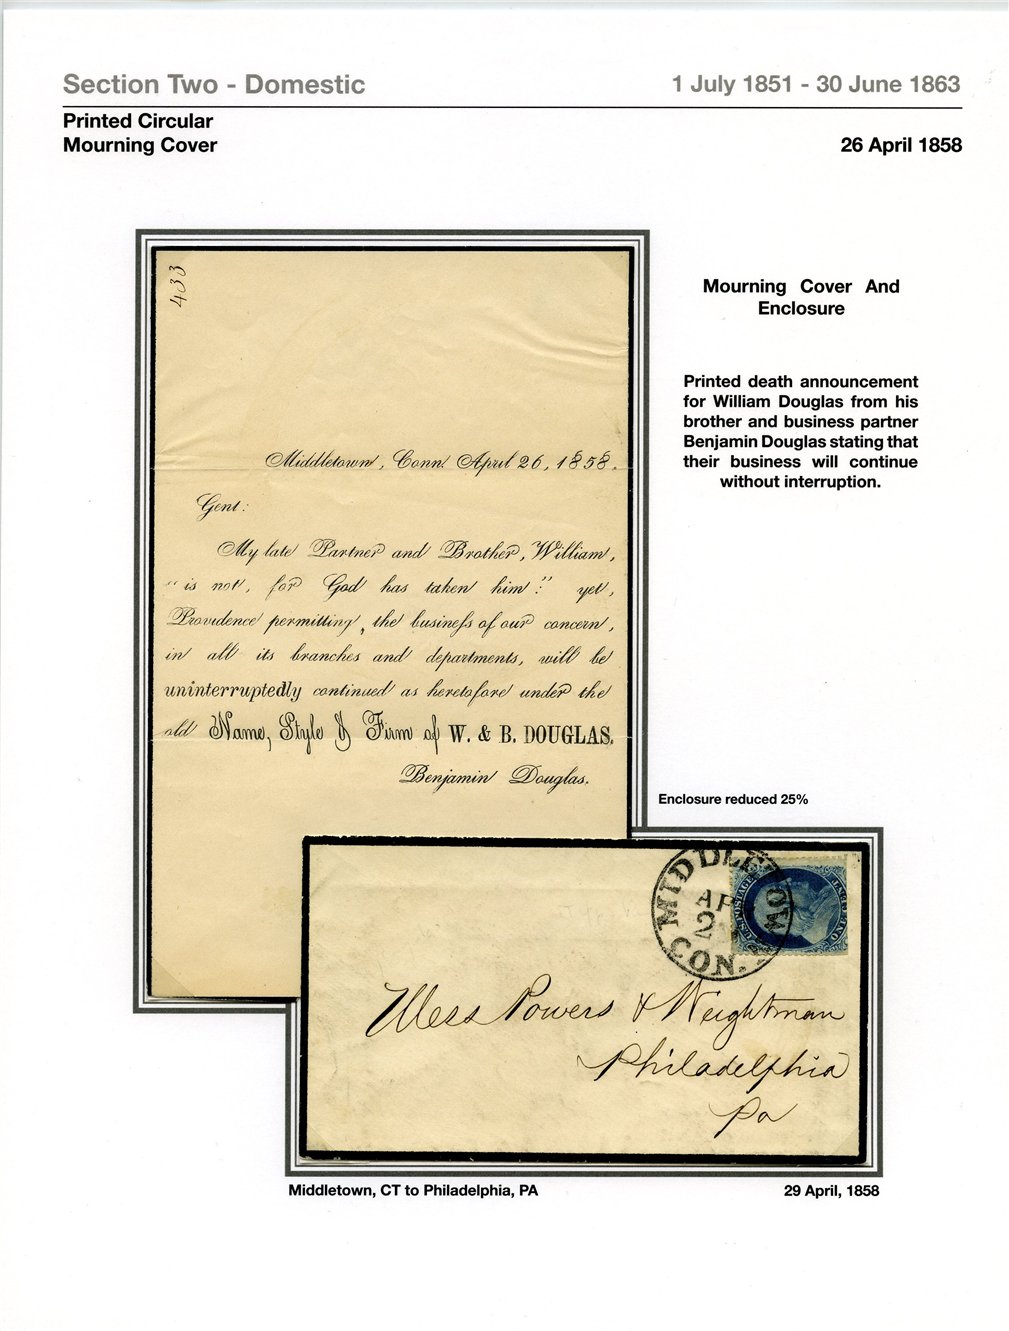 Section Two - Domestic
1 July 1851 - 30 June 1863
Printed Circular
Mourning Cover
26 April 1858
Mourning Cover And
Enclosure
Printed death announcement
for William Douglas from his
brother and business partner
Benjamin Douglas stating that
their business will continue
without interruption.
433
Middletown, Conn. April 26, 1858.
Gent:
My late Partner and Brother, William,
"is not, for God has taken him:" yet,
Providence permitting, the business of our concern,
in all its branches and departments, will be
uninterruptedly continued as heretofore under the
old Name, Style & Firm of W. & B. DOUGLAS.
Benjamin Douglas.
Enclosure reduced 25%
MIDDLETOWN
CON.
U.S. POSTAGE
ONE CENT
Mess Powers & Weightman
Philadelphia
Pa
Middletown, CT to Philadelphia, PA
29 April, 1858